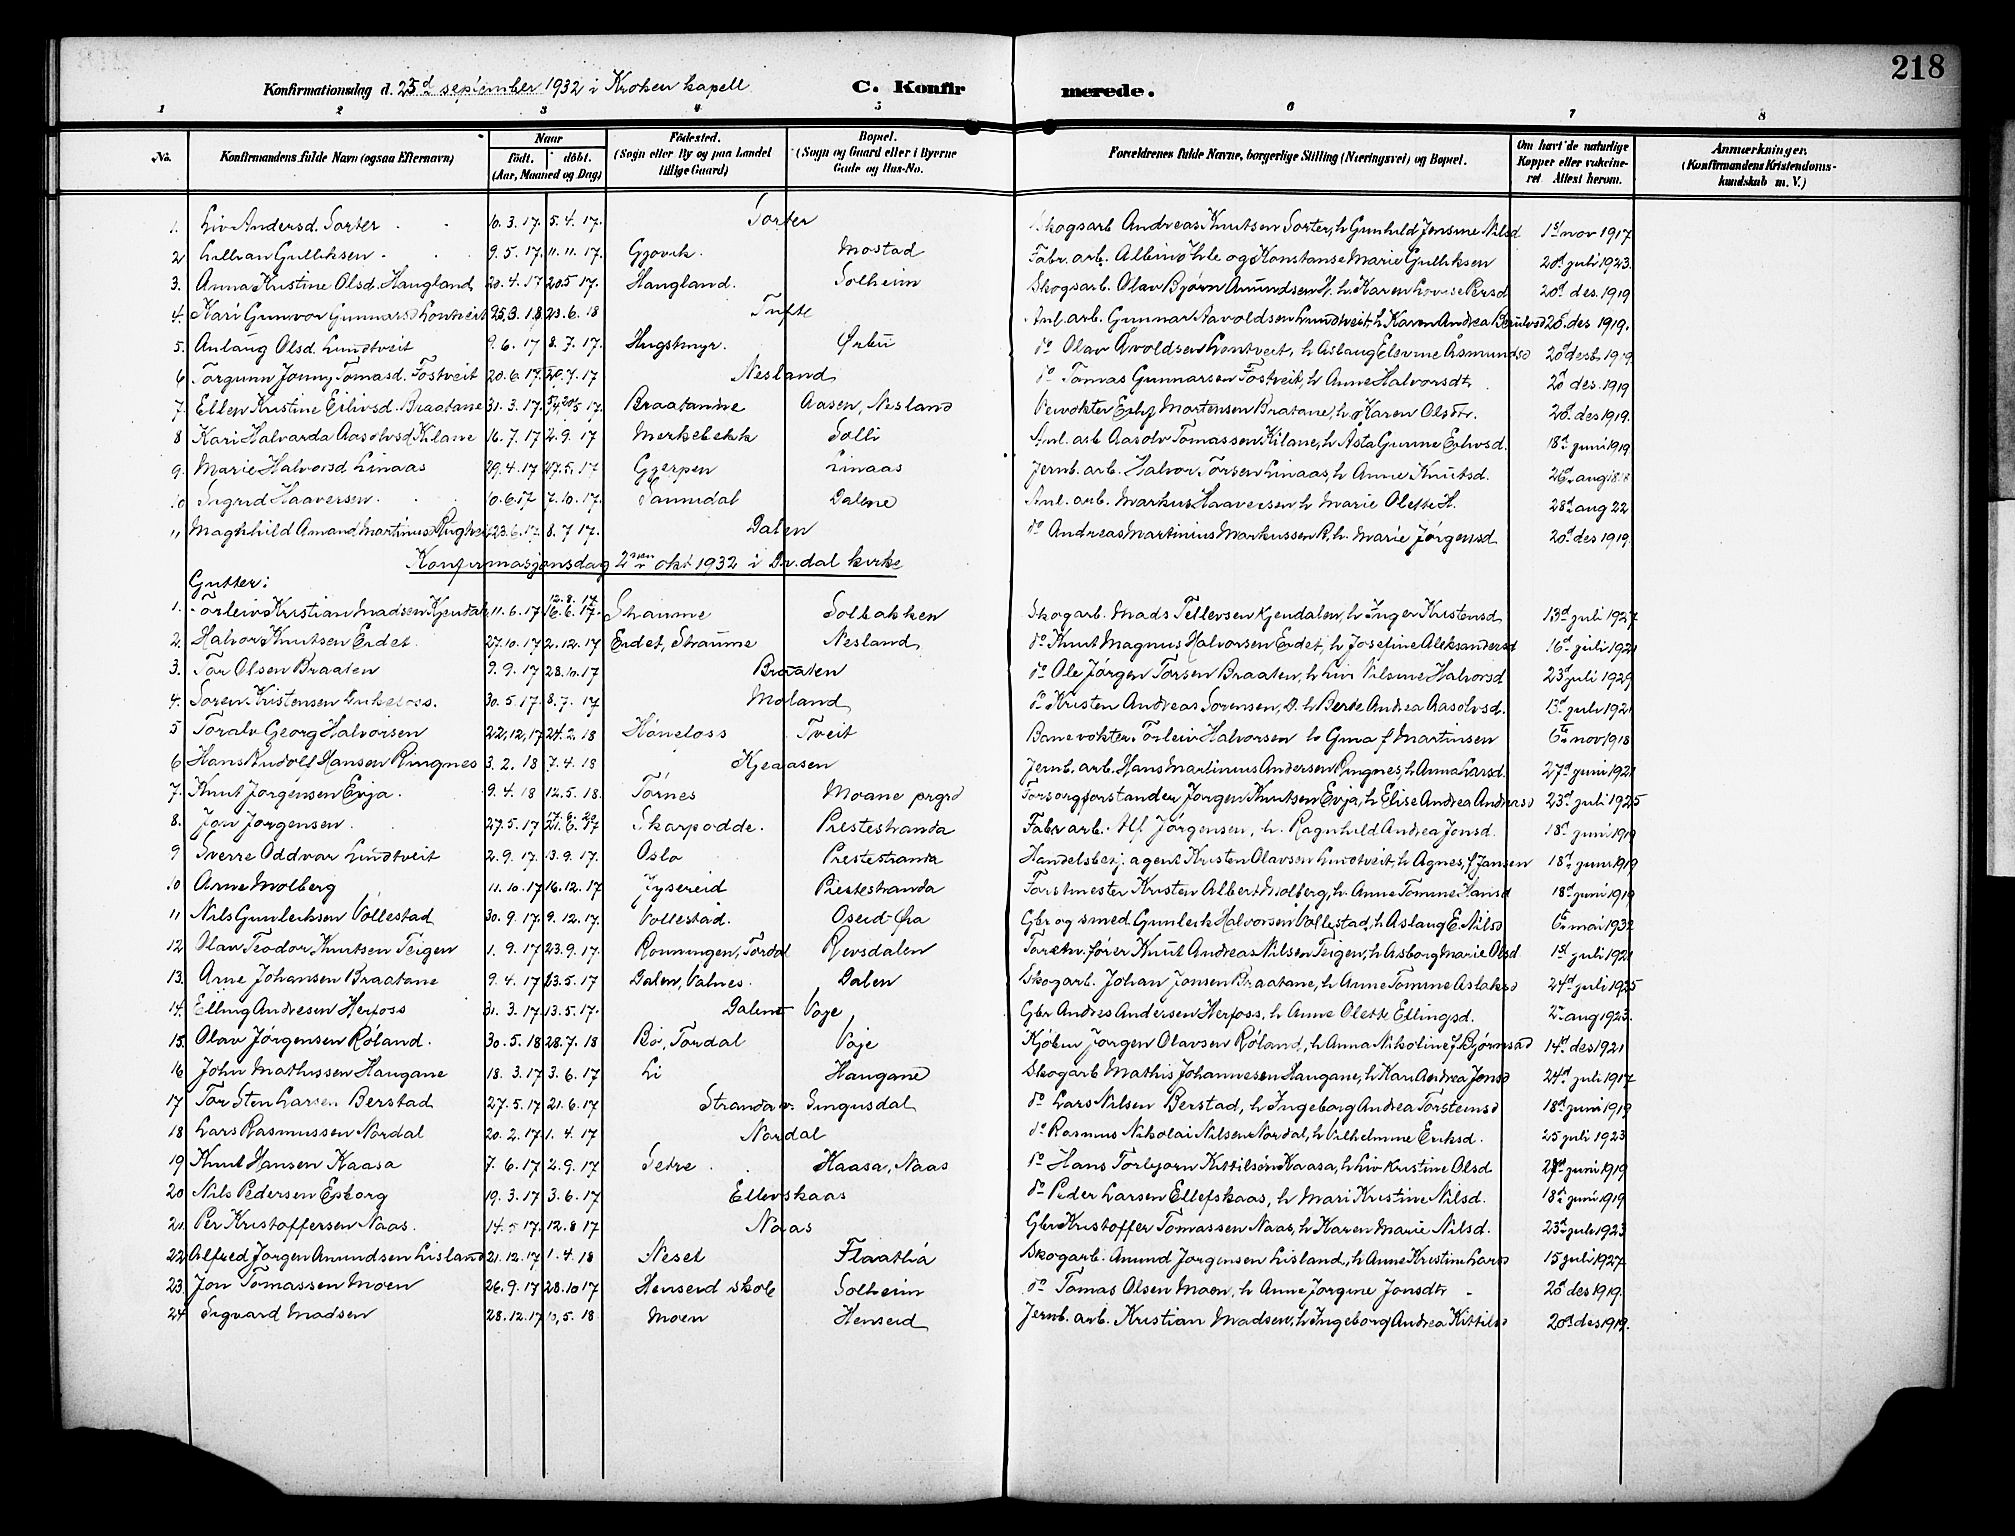 218
Konfirmationsdag d. 25d september 1932 i Kroken kapell C. Konfirmerede.
1 2 3 4 5 6 7 8
No. Konfirmandens fulde Navn (ogsaa Efternavn) Naar født. døbt. (Aar, Maaned og Dag) Fødested. (Sogn eller By og paa Landet tillige Gaard) Bopæl. (Sogn og Gaard eller i Byerne Gade og Hus-No. Forældrenes fulde Navne, borgerlige Stilling (Næringsvei) og Bopæl. Om havt de naturlige Kopper eller vaccineret Attest herom. Anmærkninger. (Konfirmandens Kristendomskundskab m. V.)
1. Liv Andersd. Sorter 10. 3. 17. 5. 4. 17. Sorter Skogsarb Andreas Knutsen Sorter, h Gunhild Jensine Nilsd 1st nov 1917
2 Lillian Gulliksen 9. 5. 17. 11. 11. 17. Gjøvik. Mostad Fabr. arb. Albin Øhle og Konstanse Marie Gulliksen 20d juli 1923.
3. Anna Kristine Olsd. Haugland 20. 4. 17 20.5 17. Haugland. Solheim Skogsarb. Olav Bjørn Amundsen H. h. Karen Lovise Persd 20d des. 1919
4. Kari Gunvor Gunnarsd Lontveit 25.3. 18 23. 6. 18 Tufte Anl. arb. Gunnar Aavoldsen Lundtveit, h Karen Andrea 20d des 1919.
5. Anlaug Olsd. Lundtveit 9. 6. 17 8. 7. 17. Hugstmyr. Ørbu do Olav Avoldsen Lontveit, h Aslaug Elevine Asmundsd 20d des 1919
6 Torgunn Jonny Tomasd. Fostveit 20. 6. 17. 20. 7. 17 Nesland do Tomas Gunnarsen Fostveit, h Anne Halvorsdtr 20d des. 1919
7. Ellen Kristine Eilivsd. Braatane 31. 3. 17. 17. Braatanne Aasen, Nesland Veivokter Mortensen Bratane, h. Karen Olsdtr. 20d des 1919.
8 Kari Halvarda Aasolvsd Kilane 16. 7. 17 2. 9. 17 Merkebekk Solli Anl. arb Aasolv Tomassen Kilane, h Asta Gurine Eilivsd. 18d juni 1919
9. Marie Halvorsd Linaas 29. 4. 17 27. 5. 17 Gjerpen Linaas Jernb. arb. Halvor Torsen Linaas, h Anne Knutsd. 26d aug
10 Ingrid Haaversen. 10.6.17 7. 10. 17. Sannidal Dalene Anl. arb. Markus Haaversen h Marie Olette H. 28d aug 22
11 Maghhild Amanda Martinius 23. 6. 17. 8. 7 17. Dalen do Andreas Martinius Markussen R, h. Marie Jørgensd 20d des 1919.
Konfirmasjonsdag 2nen okt 1932 i Dr.dal kirke
Gutter:
12. 8. 17
1. Torleiv Kristian Madsen Kjendal 11. 6. 17 16. 6. 17. Straume Solbakken Skogarb. Mads Tellevsen Kjendalen, h Inger Kristensd 13d juli 1927
2. Halvor Knutsen Eidet 27. 10. 17 2. 12. 17 Eidet, Straume Nesland do Knut Magnus Halvorsen Eidet, h Josefine Aleksandersd 16d juli 1921
3. Tor Olsen Braaten 9. 9. 17 28. 10. 17 Braaten do Ole Jørgen Torsen Braaten, h Liv Nilsine Halvorsd 23d juli 1929
4. Søren Kristensen 30. 5. 17 8. 7. 17 Moland do Kristen Andreas Sørensen, D. h Berte Andrea Aasolvsd. 13d juli 1921
5 Toralv Georg Halvorsen 22, 12, 17 24. 2. 18 Høneloss Tveit Banevokter Torleiv Halvorsen h Gina f Martinsen 6te nov 1918
6 Hans Rudolf Hansen Ringnes 3. 2. 18 7. 4. 18 Kjeaasen Jernb. arb. Hans Martinius Andersen Ringnes, h Anna Larsd. 27d juni 1921
7. Knut Jørgensen Evja. 9. 4. 18 12. 5. 18. Tørnes Moane prgrd Forsorgforstander Jørgen Knutsen Evja, h Elise Andrea Andersd 23d juli 1925
8. Jon Jørgensen. 27. 5. 17 21. 6. 17 Skarpodde. Prestestranda Fabr arb. Alf Jørgensen, h. Ragnhild Andrea Jonsd. 18d juni 1919
9 Sverre Oddvar Lundtveit 2. 9. 17. 13. 9. 17. Oslo Prestestranda Handelsbetj. agent Kristen Olavsen Lundtveit, h Agnes, f Jansen 18d juni 1919
10 Arne Molberg 11. 10. 17 16. 12. 17 Prestestranda Forstmester Kristen Albert Molberg, h. Anne Tomine Hansd 18d juni 1919
11 Nils Gunleiksen Vollestad 30. 9. 17. 9. 12. 17. Vollestad. Oseid-øra Gbr og smed Gunleik Halvorsen Vollestad, h Aslaug E. Nilsd 6te mai 1932
12 Olav Teodor Knutsen Teigen 1. 9. 17 23. 9. 17. Rønningen, Tørdal Revsdalen Knut Andreas Nilsen Teigen, h Asborg Marie Olsd 1st juli 1921
13. Arne Johansen Braatane 9. 4. 17 23. 5. 17 Dalen, Valnes. Dalen Skogarb. Johan Jonsen Braatane, h Anne Tomine Aslaksd 24d juli 1925
14. Elling Andresen Herfoss 31. 3. 17 13. 5. 17. Dalene Voje Gbr Andres Andersen Herfoss, h Anne Olette Ellingsd. 2n aug 1923.
15. Olav Jørgensen Røland. 30. 5. 18 28. 7. 18 Bø, Tørdal Voje Kjøbm Jørgen Olavsen Røland, h Anna Nikoline f. Bjørnstad 14d des 1921
16 John Mathissen Haugane 18. 3. 17 3. 6. 17 Li Haugane Skogarb Mathis Johannesen Haugane, h Kari Andrea Jonsd 24d juli 1917
17 Tor Sten Larsen Berstad 27. 5. 17 21. 6. 17 Stranda v. Gingusdal do Lars Nilsen Berstad, h Ingeborg Andrea Torsteinsd 18d juni 1919
18 Lars Rasmussen Nordal 20. 2. 17 1. 4. 17 Nordal do Rasmus Nikolai Nilsen Nordal, h Vilhelmine Eriksd. 25 juli 1923
19 Knut Hansen Kaasa 7. 6. 17 2. 9. 17 Setre Kaasa, Naas do Hans Torbjørn Kittilsøn Kaasa, h Liv Kristine Olsd juni 1919
20 Nils Pedersen Espborg 19. 3. 17 3. 6. 17 Ellevskaas do Peder Larsen Ellefskaas, h Mari Kristine Nilsd. 18d juni 1919
21. Per Kristoffersen Naas. 14. 5 17. 12. 8 17 Naas Gbr Kristoffer Tomassen Naas, h Karen Marie Nilsd. 23d juli 1923
22 Alfred Jørgen Amundsen Lisland 21. 12. 17 1. 4. 18 Neset Flaatlia Skogarb. Amund Jørgensen Lisland, h Anne Kristine Larsd 15 juli 1927
23. Jon Tomassen Moen 26. 9. 17 28. 10 17 Henseid skole Solheim do Tomas Olsen Moen, h Anne Jørgine Jonsdtr 20d des 1919.
24 Sigvard Madsen 28. 12. 17 5. 18 Moen Henseid Jernb. arb. Kristian Madsen, h Ingeborg Andrea Kittilsd 20d des 1919.